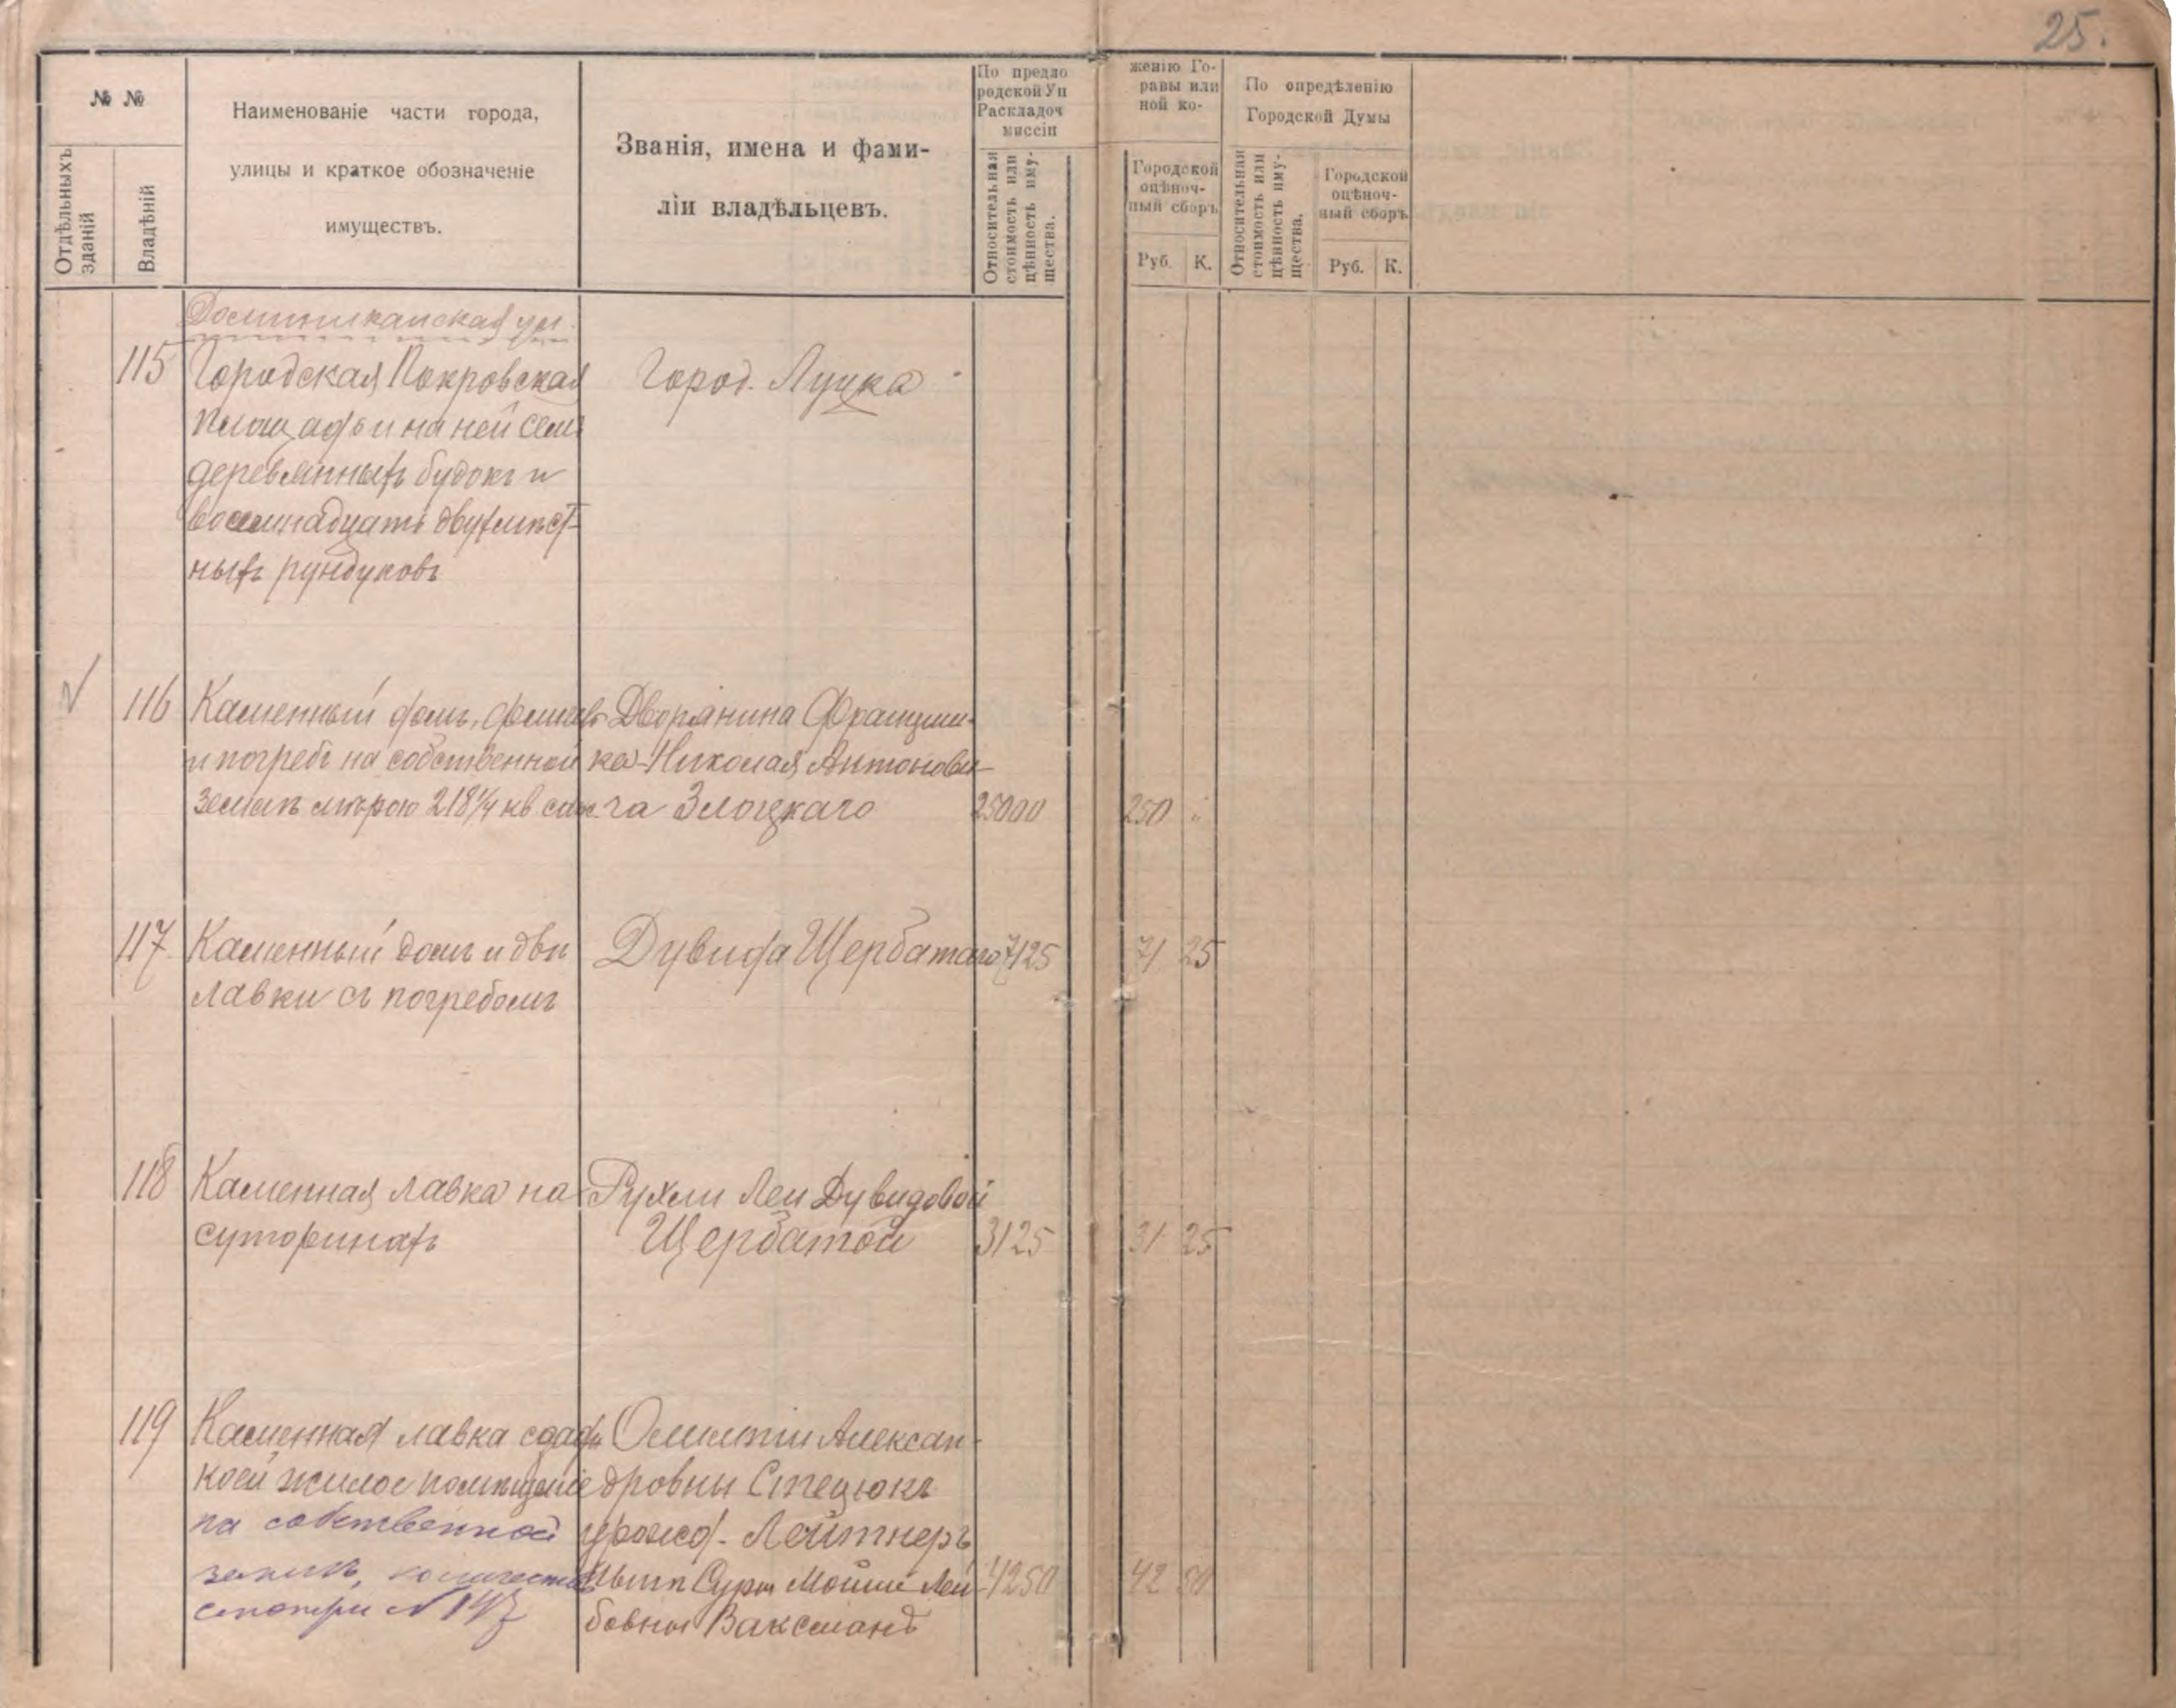 25.
№ №
Отдѣльныхъ зданій
Владѣній
Наименованіе части города,
улицы и краткое обозначеніе
имуществъ.
Званія, имена и фами-
ліи владѣльцевъ.
По предло
родской Уп
Раскладоч
миссіи
Относительная
стоимость или
цѣнность иму-
щества.
женію Го-
равы или
ной ко-
Городской
оцѣноч-
ный сборъ
Руб. К.
По опредѣленію
Городской Думы
Относительная
стоимость или
цѣнность иму-
щества.
Городской
оцѣноч-
ный сборъ
Руб. К.
Доминиканская ул.
115 Городская Покровская
площадь и на ней семь
деревянныхъ будокъ и
восемнадцать двухмѣст-
ныхъ рундуковъ
Город. Луцка
116 Каменный домъ, флигель
и погребъ на собственной
землѣ мѣрою 218 1/4 кв саж.
Дворянина Франциш-
ка-Николая Антонови-
ча Злоцкаго
25000 250 "
117. Каменный домъ и двѣ
лавки съ погребомъ
Дувида Щербатаго
7125 71 25
118 Каменная лавка на
суторинахъ
Рухли Леи Дувидовой
Щербатой
3125 31 25
119 Каменная лавка
коей жилое помѣщеніе
на собственной
землѣ,
смотри № 147
Алексан-
дровны Стецюкъ
урожд. Лейтнеръ
Суры Мошко Лей-
бовны Ваксманъ
4250 42 50